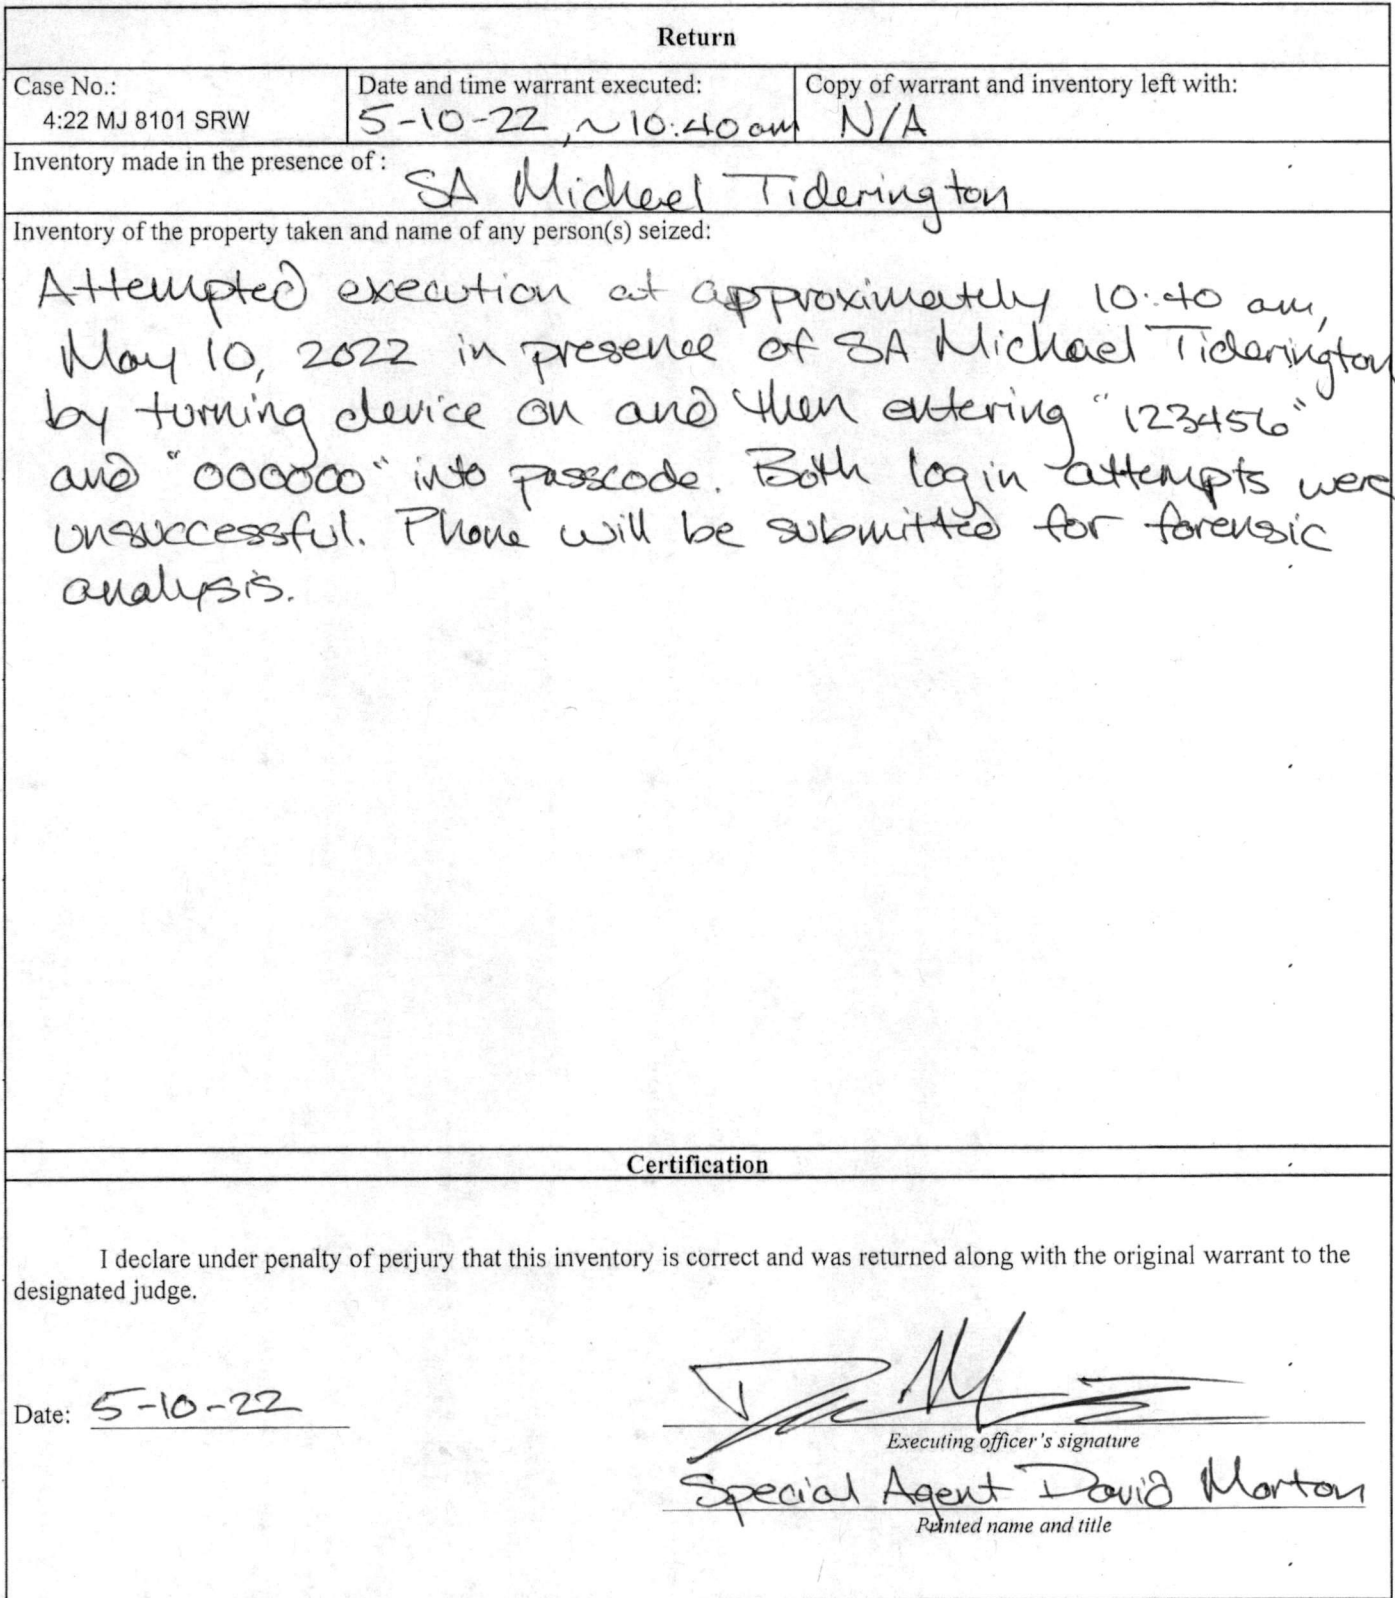 Return
Case No.:
4:22 MJ 8101 SRW
Date and time warrant executed:
5-10-22, ~10:40 am
Copy of warrant and inventory left with:
N/A
Inventory made in the presence of :
SA Michael Tiderington
Inventory of the property taken and name of any person(s) seized:
Attempted execution at approximately 10:40 am,
May 10, 2022 in presence of SA Michael Tiderington
by turning device on and then entering "123456"
and "000000" into passcode. Both login attempts were
unsuccessful. Phone will be submitted for forensic
analysis.
Certification
I declare under penalty of perjury that this inventory is correct and was returned along with the original warrant to the
designated judge.
Date: 5-10-22
Executing officer's signature
Special Agent David Morton
Printed name and title